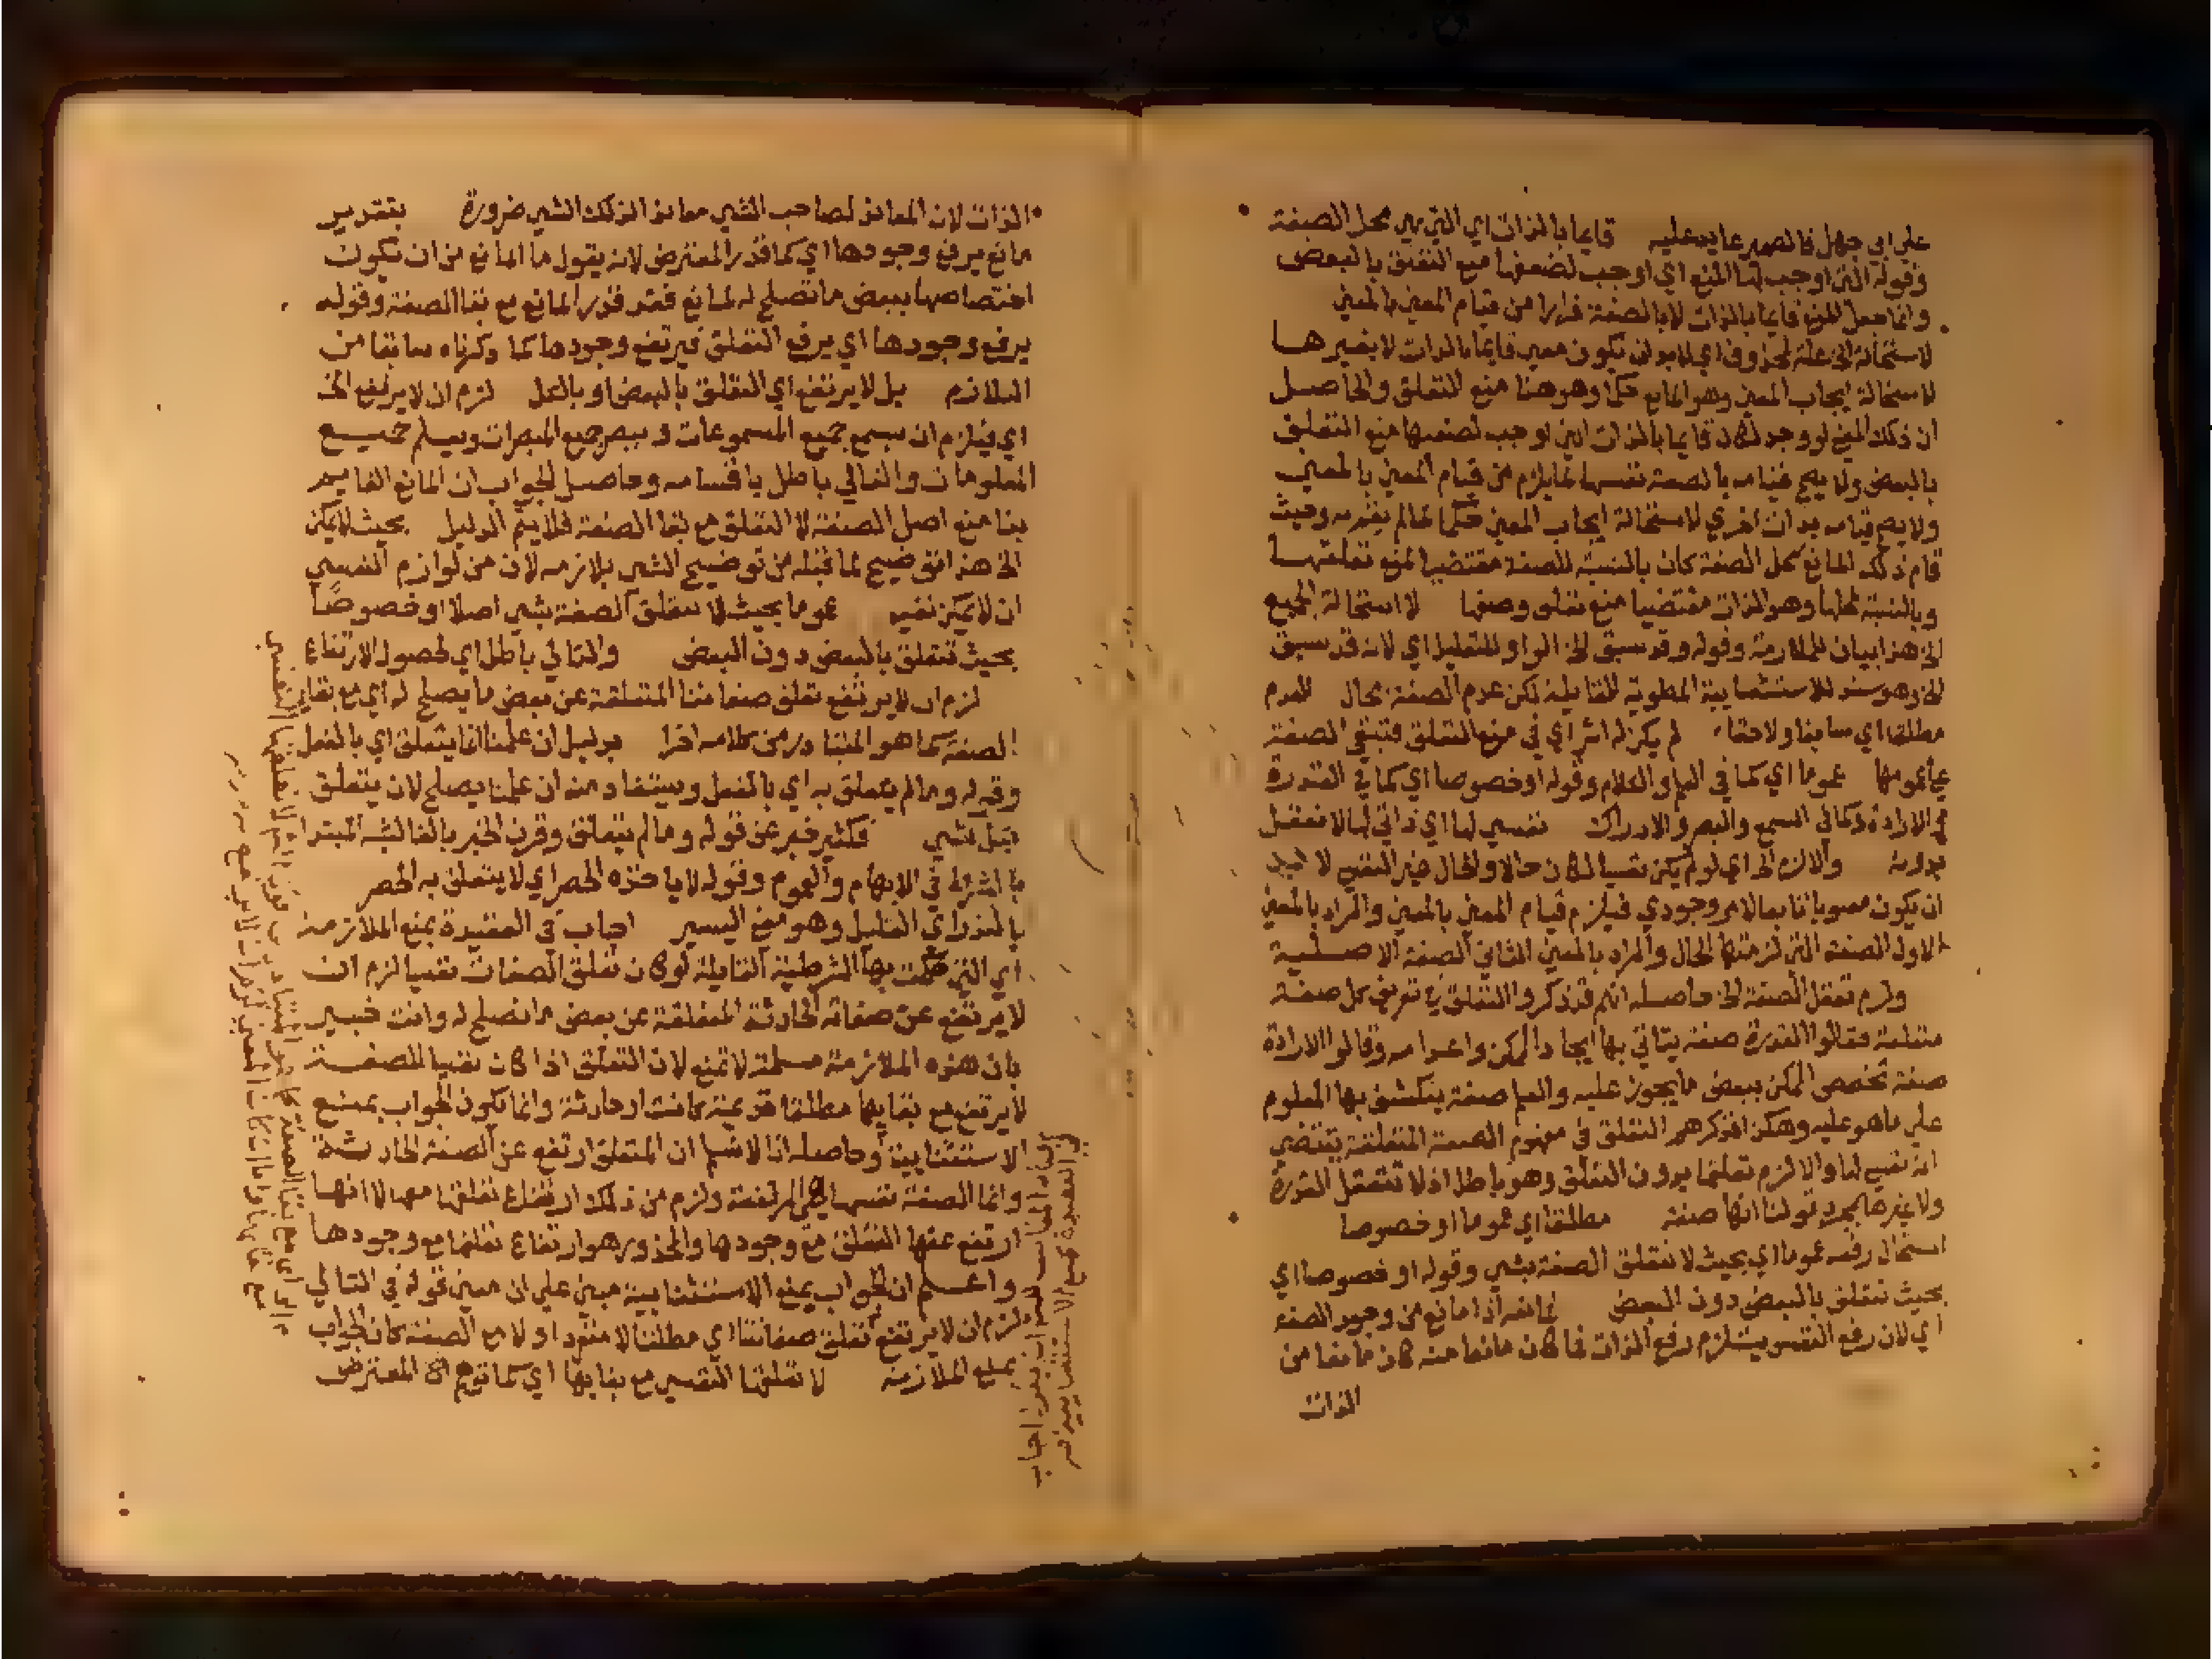 علي ابي جهل فالضمير عايد عليه قايما بالذات اي التي هي محل الصفة
وقوله الذي اوجب لها المنع اي اوجب لضعفها منع التعلق بالبعض
وانما جعل المنع قايما بالذات لا بالصفة فرارا من قيام المعني بالمعني
لاستحالة الخ علة لمحذوف اي لا بد ان يكون معني قايما بالذات لا بغيرها
لاستحالة ايجاب المعني وهو المانع حكما وهو هنا منع التعلق والحاصل
ان ذلك المعني لو وجد لكان قايما بالذات اي اوجب لصفتها منع التعلق
بالبعض ولا يصح قيامه بالصفة نفسها لما يلزم من قيام المعني بالمعني
ولا يصح قيامه بذات اخري لاستحالة ايجاب المعني حكما لما لم يقم به وحيث
قام ذلك المانع بمحل الصفة كان بالنسبة للصفة مقتضيا لمنع تعلقها
وبالنسبة لمحلها وهو الذات مقتضيا منع تعلق وصفها لاستحالة الجمع
الخ هذا بيان للملازمة وقوله وقد سبق الخ الواو للتعليل اي لانه قد سبق
الخ وهو سند للاستثنايية المطوية القايلة لكن عدم الصفة محال للعدم
مطلقا اي سابقا ولاحقا لم يكن له اثر اي في منع التعلق فتبقي الصفة
علي عمومها عموما اي كما في العلم والكلام وقوله او خصوصا اي كما في القدرة
والارادة وكما في السمع والبصر والادراك نفسي لها اي ذاتي لها لا تعقل
بدونه والا لزم الخ اي لو لم يكن نفسيا لكان حالا والحال غير النفسي لا بد
ان يكون معنويا تابعا لامر وجودي فيلزم قيام المعني بالمعني والمراد بالمعني
الاول الصفة التي لزمتها الحال والمراد بالمعني الثاني الصفة الاصلية
ولزم تعقل الصفة الخ حاصله انهم قد ذكروا التعلق في تعريف كل صفة
متعلقة فقالوا القدرة صفة يتاتي بها ايجاد الممكن واعدامه وقالوا الارادة
صفة تخصص الممكن ببعض ما يجوز عليه والعلم صفة ينكشف بها المعلوم
علي ما هو عليه وهكذا فذكرهم التعلق في مفهوم الصفة المتعلقة يقتضي
انه نفسي لها والا لزم تعقلها بدون التعلق وهو باطل اذ لا تتعقل القدرة
ولا غيرها بمجرد قولنا انها صفة مطلقا اي عموما او خصوصا
استحال رفعه عموما اي بحيث لا تتعلق الصفة بشي وقوله او خصوصا اي
بحيث تتعلق بالبعض دون البعض فالمانع اذا مانع من وجود الصفة
اي لان رفع النفسي يستلزم رفع الذات فما كان مانعا منه كان مانعا من
الذات
الذات لان المعاند لصاحب الشي معاند لذلك الشي ضرورة بتقدير
مانع يرفع وجودها اي كما قدر المعترض لانه يقول ما المانع من ان تكون
اختصاصها ببعض ما تصلح له لمانع فقد قدر المانع مع بقا الصفة وقوله
يرفع وجودها اي يرفع التعلق فيرتفع وجودها كما ذكرناه سابقا من
التلازم بل لا يرتفع اي التعلق بالبعض او بالكل لزم ان لا يرتفع الخ
اي فيلزم ان يسمع جميع المسموعات ويبصر جميع المبصرات ويعلم جميع
المعلومات والتالي باطل باقسامه وحاصل الجواب ان المانع القايم
بنا منع اصل الصفة لا التعلق مع بقا الصفة فلا يتم الدليل بحيث لا يمكن
الخ هذا توضيح لما قبله من توضيح الشي بلازمه لان من لوازم النفسي
ان لا يمكن نفيه عموما بحيث لا تتعلق الصفة بشي اصلا او خصوصا
بحيث تتعلق بالبعض دون البعض والتالي باطل اي لحصول الارتفاع
لزم ان لا يرتفع تعلق صفاتنا المتعلقة عن بعض ما يصلح له اي مع بقاء
الصفة كما هو المتبادر من كلامه اخرا بدليل ان علمنا انما يتعلق اي بالفعل
وقوله وما لم يتعلق به اي بالفعل ويستفاد منه ان علمنا يصلح لان يتعلق
بكل شي فكثير خبر عن قوله وما لم يتعلق وقرن الخبر بالفا لشبه المبتدا
بالشرط في الابهام والعموم وقوله لا ياخذه الحصر اي لا يتعلق به الحصر
بالنذر اي القليل وهو معني اليسير اجاب في العقيدة بمنع الملازمة
اي التي حكمت بها الشرطية القايلة لو كان تعلق الصفات نفسيا لزم ان
لا يرتفع عن صفاته الحادثة المتعلقة عن بعض ما تصلح له وانت خبير
بان هذه الملازمة مسلمة لا تمنع لان التعلق اذا كان نفسيا للصفة
لا يرتفع مع بقايها مطلقا قديمة كانت او حادثة وانما يكون الجواب بمنع
الاستثنايية وحاصله انا لا نسلم ان المتعلق ارتفع عن الصفة الحادثة
وانما الصفة نفسها هي المرتفعة ولزم من ذلك ارتفاع تعلقها معها لا انها
ارتفع عنها التعلق مع وجودها والمحذور هو ارتفاع تعلقها مع وجودها
واعلم ان الجواب بمنع الاستثنايية مبني علي ان معني قوله في التالي
لزم ان لا يرتفع تعلق صفاتنا اي مطلقا لا منفردا ولا مع الصفة كان الجواب
بمنع الملازمة لا تعلقها النفسي مع بقايها اي كما توهم المعترض